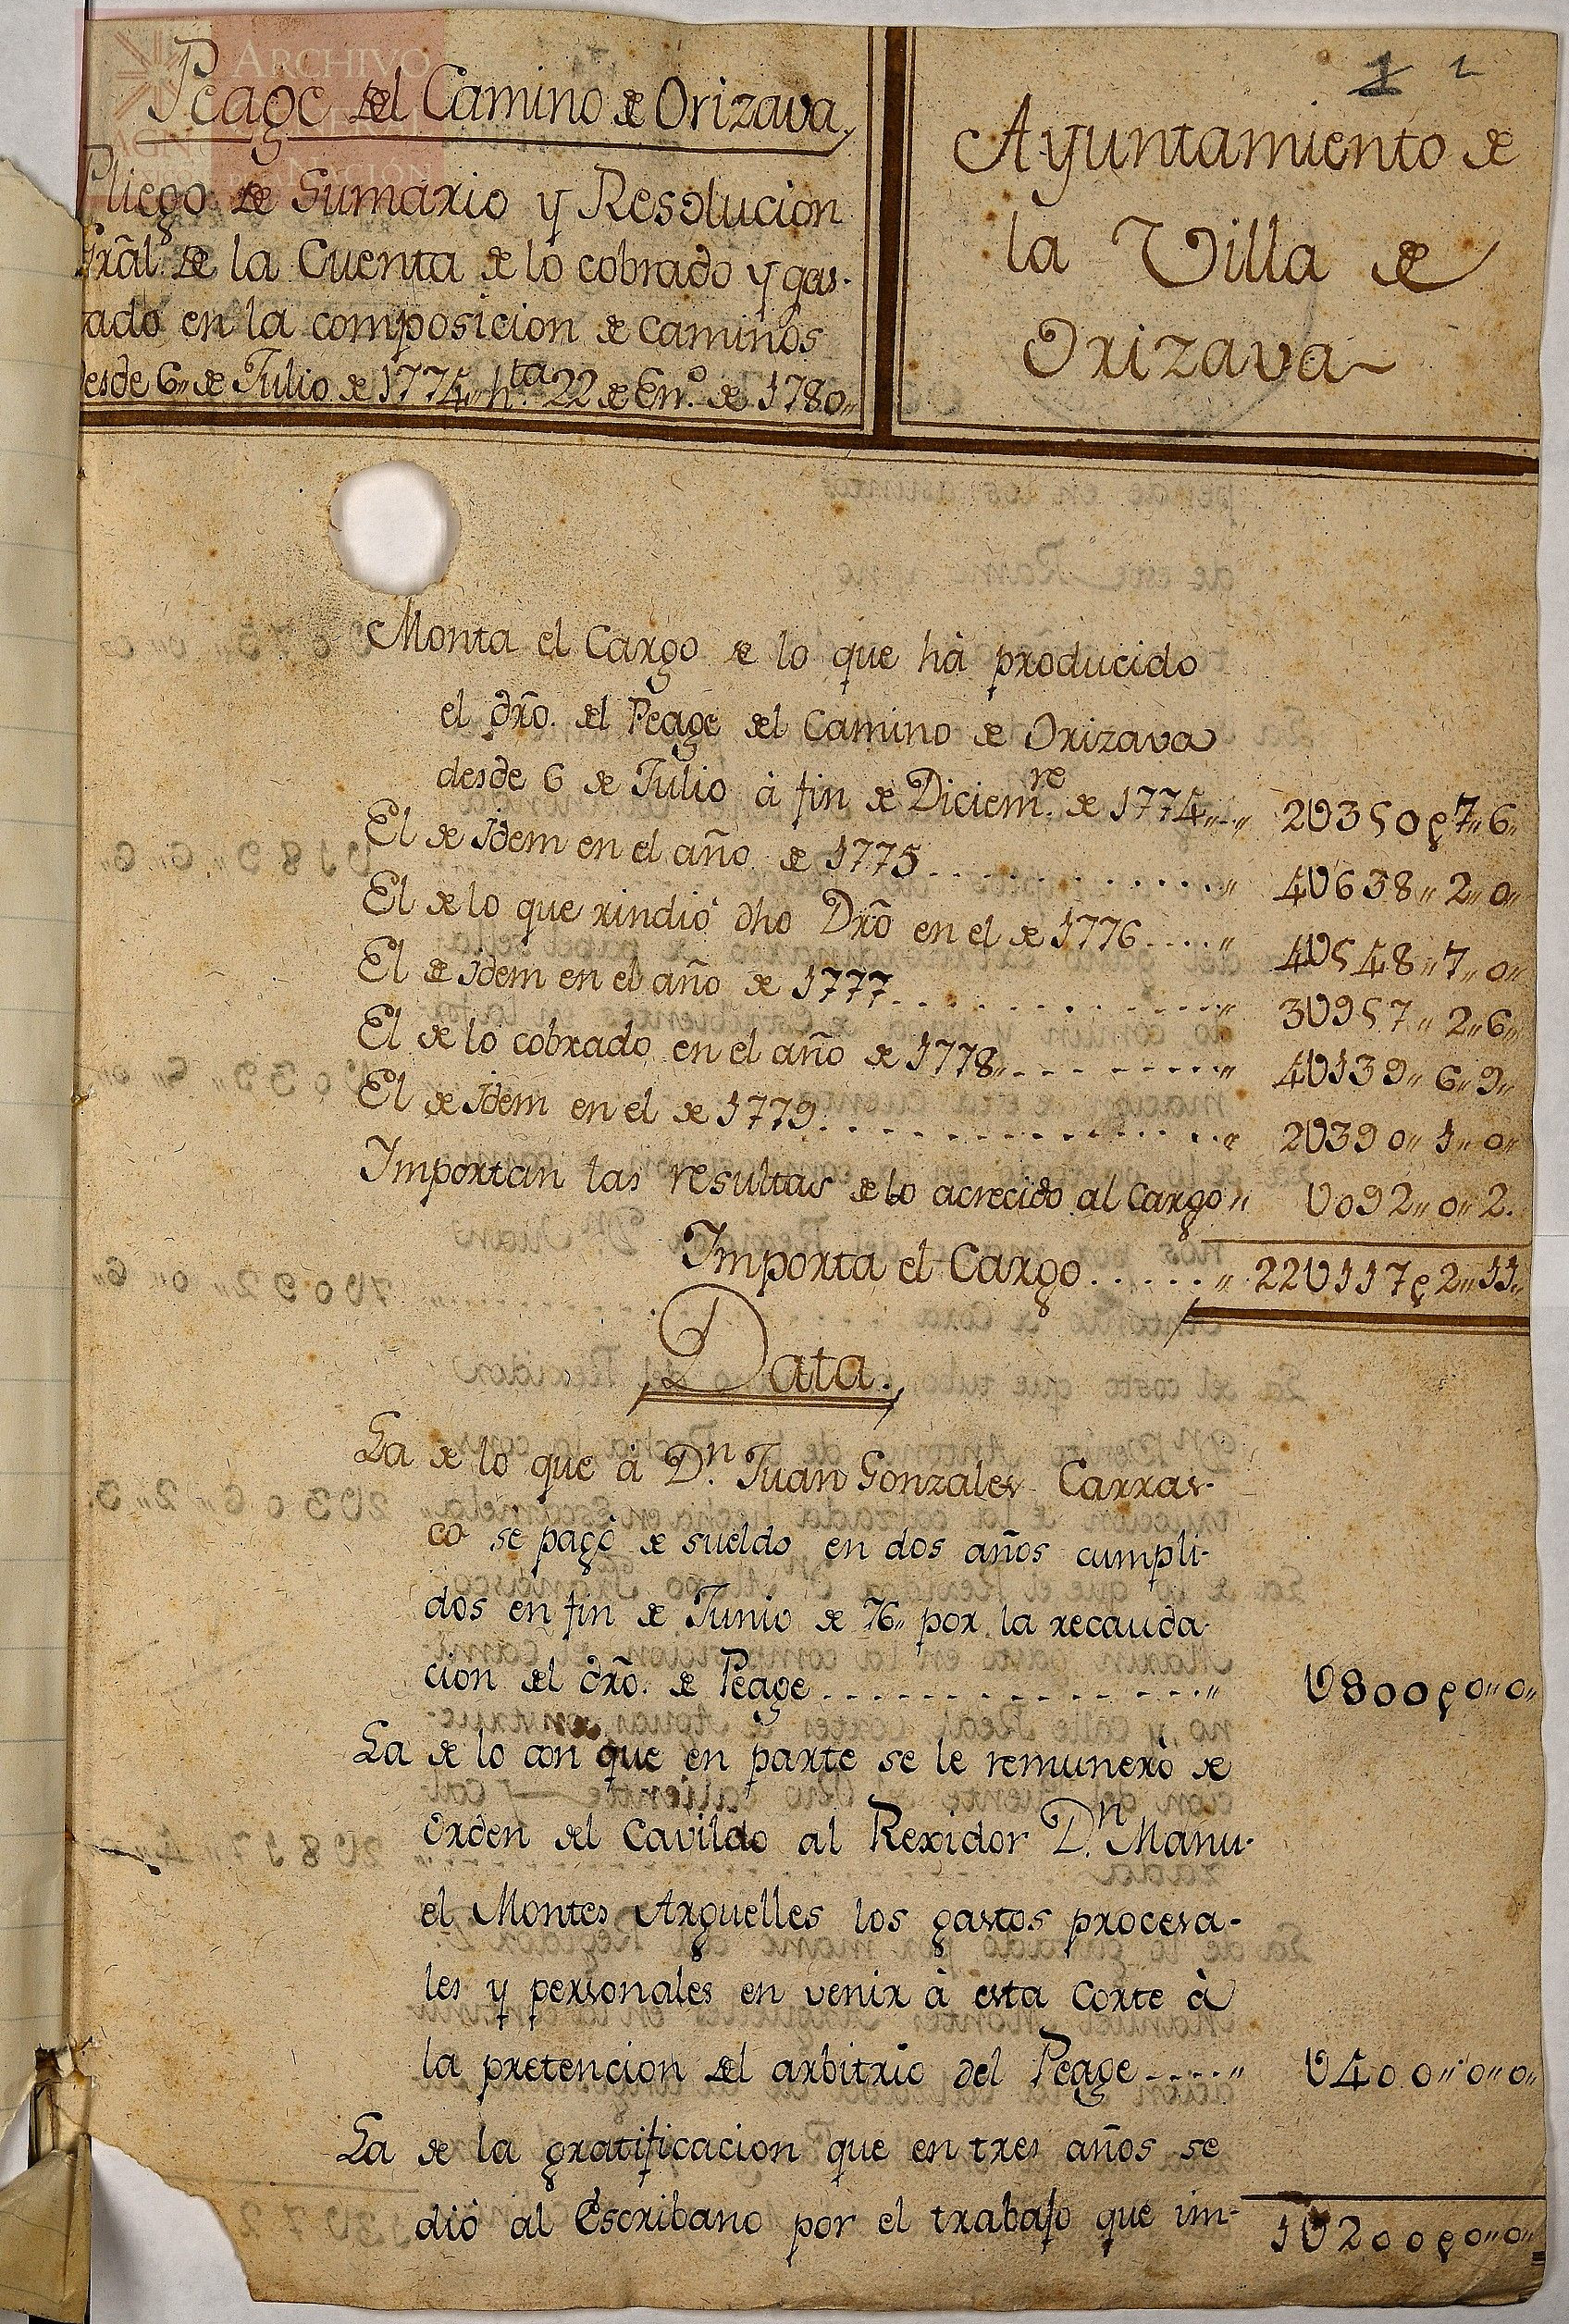 Peage del Camino de Orizava,
Pliego de Sumario y Resolucion
Grãl. de la Cuenta de lo cobrado y gas-
tado en la composicion de caminos
desde 6,, de Julio de 1774,, hta. 22 de Eno. de 1780,,
1 2
Ayuntamiento de
la Villa de
Orizava~
Monta el Cargo de lo que hà producido
el dr̃o. del Peage del Camino de Orizava
desde 6 de Julio à fin de Diciemre. de 1774,,..,, 2U350p7,,6,,
El de Jdem en el año de 1775............,, 4U638,,2,,0,,
El de lo que rindiò dho Dr̃o en el de 1776....,, 4U548,,7,,0,,
El de Jdem en el año de 1777............,, 3U957,,2,,6,,
El de lo cobrado en el año de 1778,,........,, 4U139,,6,,9,,
El de Jdem en el de 1779...............,, 2U390,,1,,0,,
Importan las resultas de lo acrecido al Cargo,, U092,,0,,2.
Importa el Cargo......,, 22U117p2,,11,,
Data.,
La de lo que à Dn. Juan Gonzales Carras-
co se pagò de sueldo en dos años cumpli-
dos en fin de Junio de 76,, por la recauda-
cion del dr̃o. de Peage...............,, U800p0,,0,,
La de lo con que en parte se le remunerò de
orden del Cavildo al Rexidor Dn. Manu-
el Montes Arguelles los gastos procesa-
les y personales en venir à esta Corte à
la pretencion del arbitrio del Peage....,, U400,,0,,0,,
La de la gratificacion que en tres años se
diò al Escribano por el trabajo que im-
1U200p0,,0,,
ARCHIVO
AGN
NACIÓN